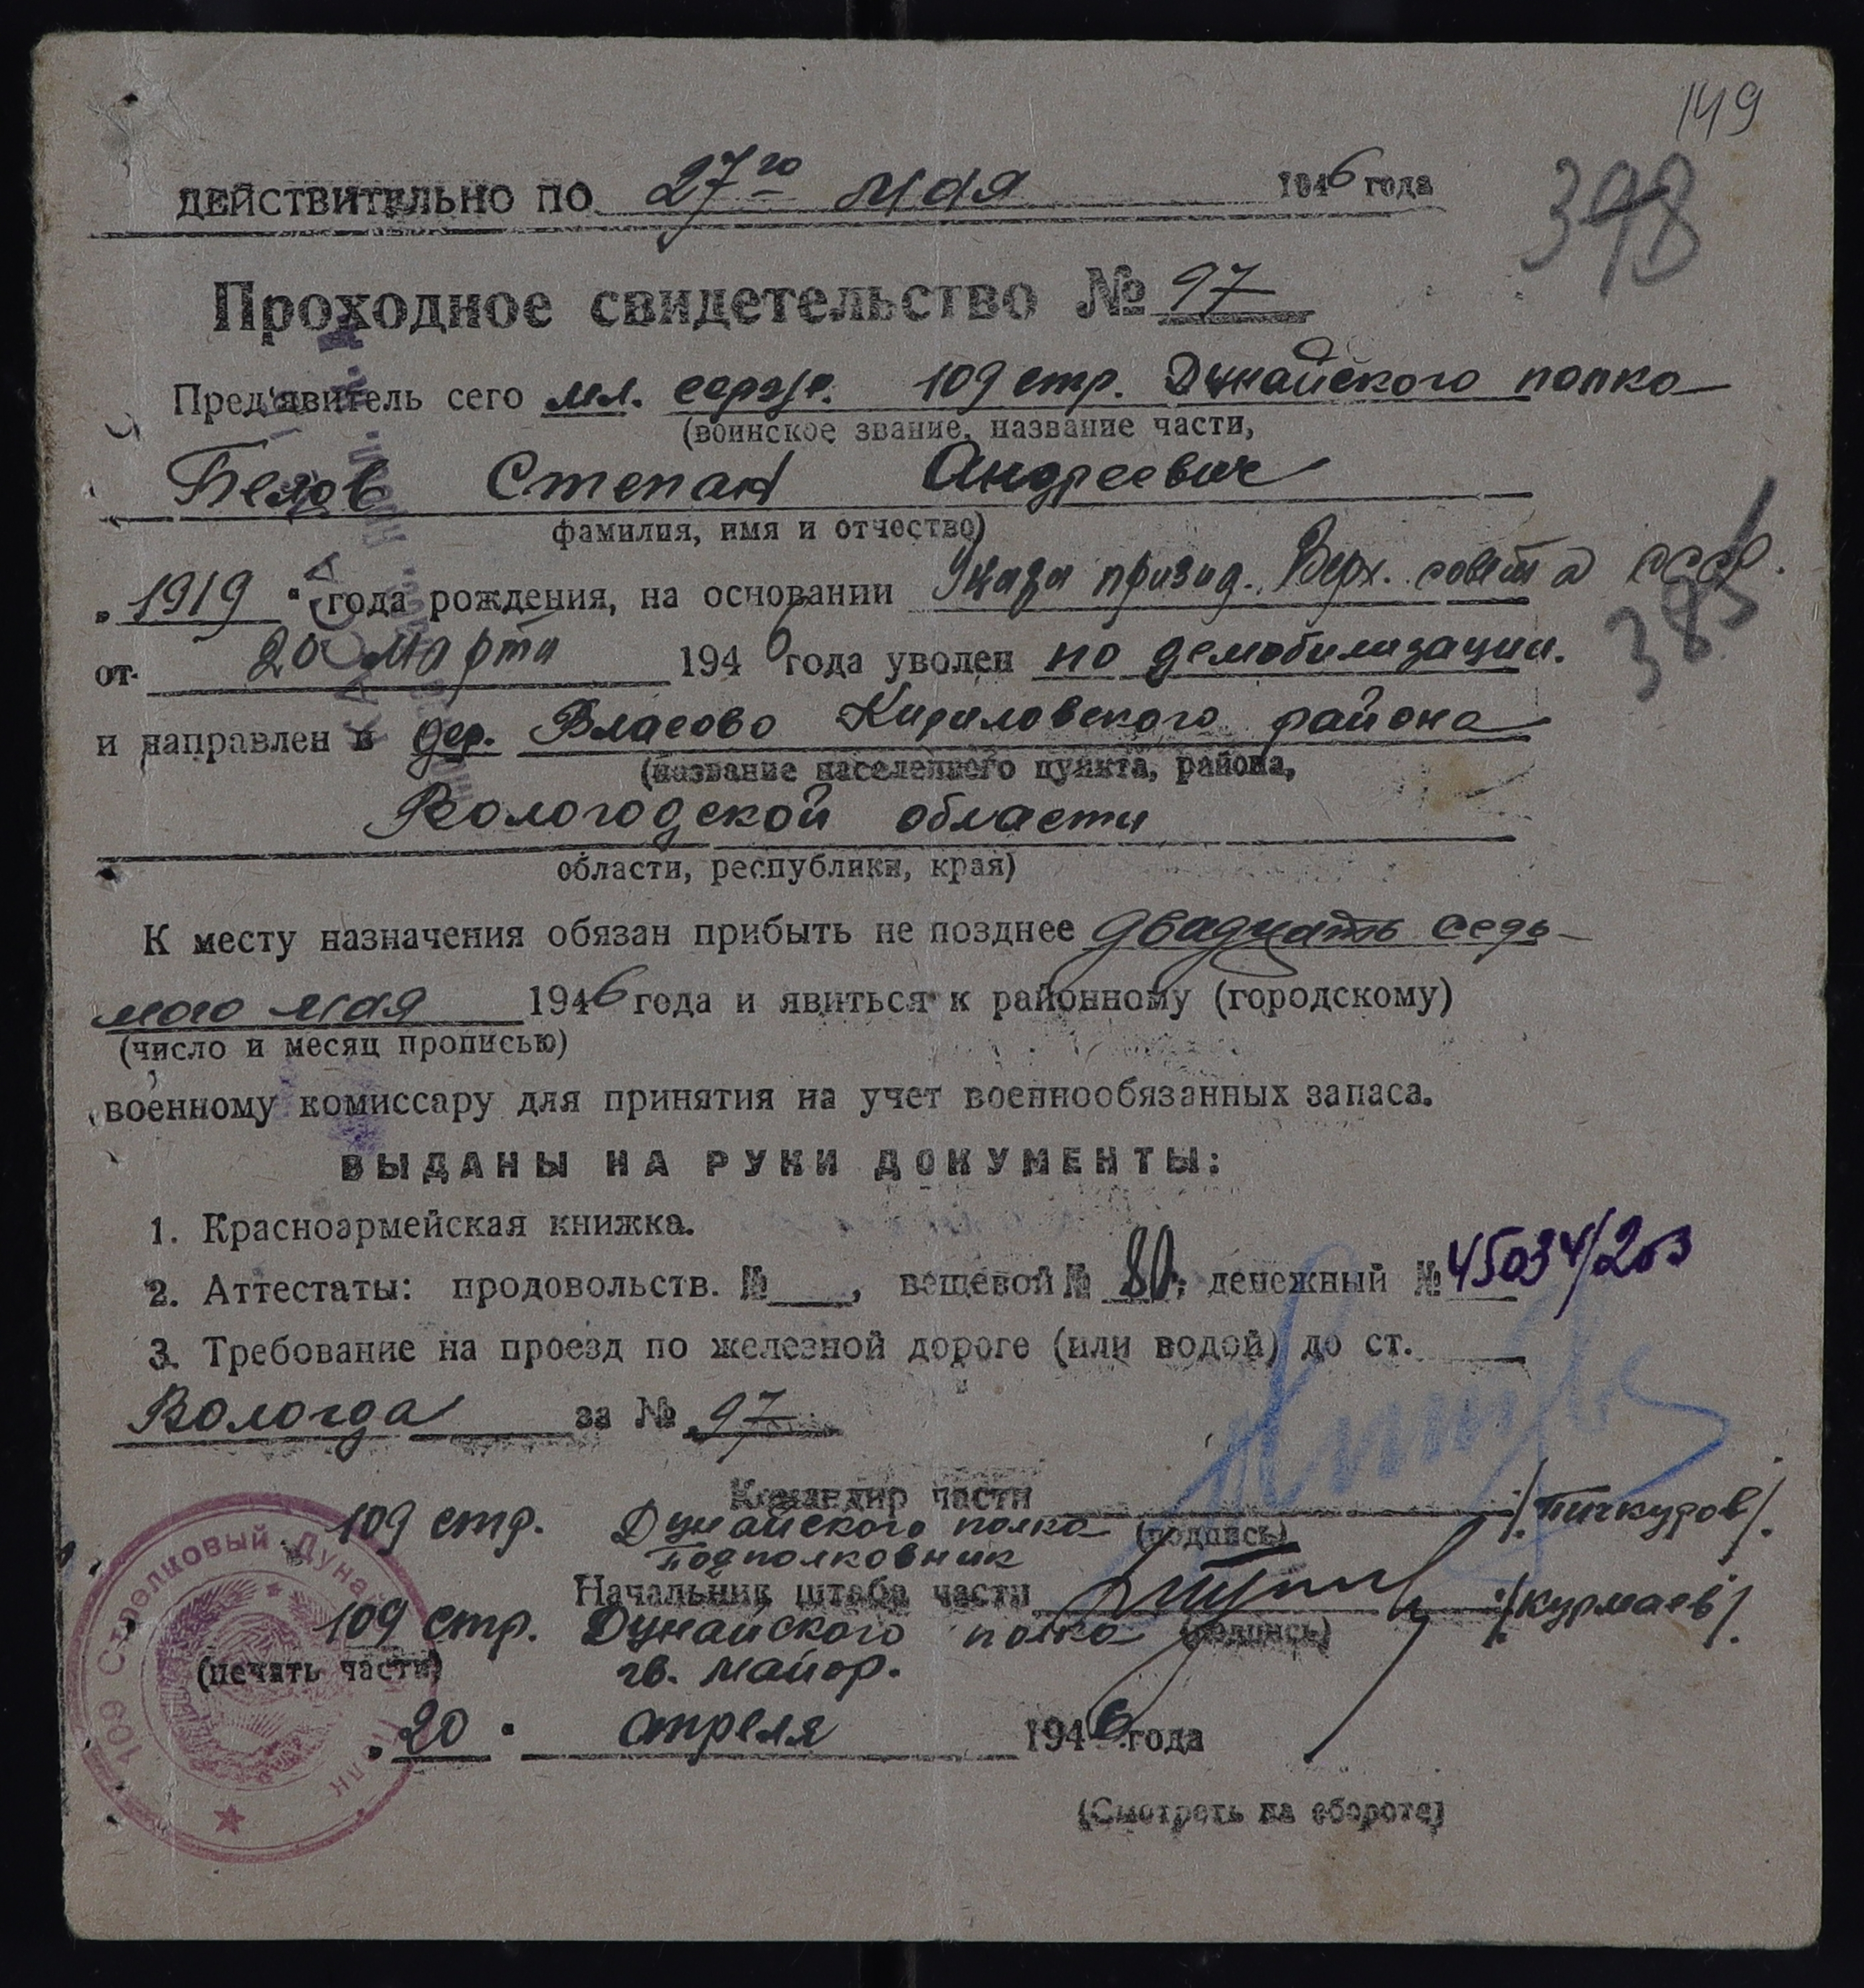 149
ДЕЙСТВИТЕЛЬНО ПО 27го мая 1946 года
398
Проходное свидетельство № 97
Пред'явитель сего мл. серж. 109 стр. Дунайского полка
(воинское звание, название части,
Белов Степан Андреевич
фамилия, имя и отчество)
„1919" года рождения, на основании Указа призид. Верх. совета СССР.
385
от 20 марта 1946 года уволен по демобилизации.
и направлен в дер. Власово Кириловского района
(название населенного пункта, района,
Вологодской области
области, республики, края)
К месту назначения обязан прибыть не позднее двадцать седь-
мого мая 1946 года и явиться к районному (городскому)
(число и месяц прописью)
военному комиссару для принятия на учет военнообязанных запаса.
ВЫДАНЫ НА РУКИ ДОКУМЕНТЫ:
1. Красноармейская книжка.
2. Аттестаты: продовольств. №___, вещевой № 80, денежный № 45034/203
3. Требование на проезд по железной дороге (или водой) до ст.
Вологда за № 97
Командир части
109 стр. Дунайского полка (подпись) /Пичкуров/.
Подполковник
Начальник штаба части /Курмаев/.
109 стр. Дунайского полка (подпись)
(печать части) гв. майор.
„20" апреля 1946 года
109 Стрелковый Дунайский Полк
(Смотреть на обороте)